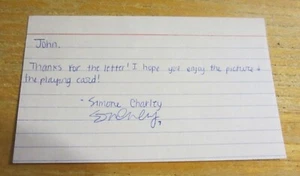 John,
Thanks for the letter! I hope you enjoy the picture &
the playing card!
- Simone Charley